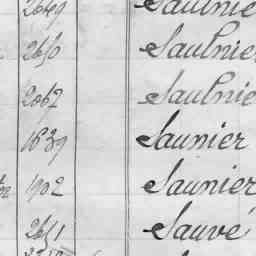 2649 Saulnie
2650 Saulnie
2067 Saulnie
1639 Saunier
1902 Saunier
2651 Sauvé